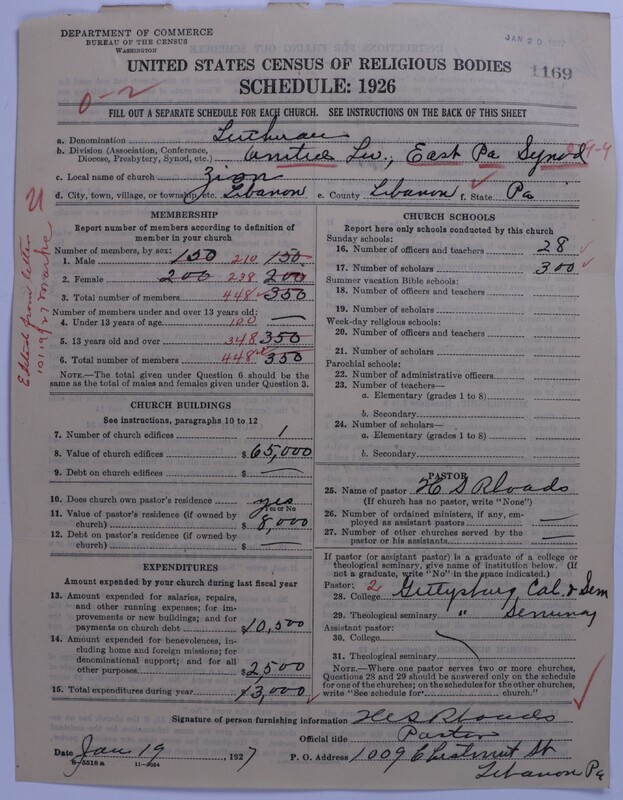 DEPARTMENT OF COMMERCE
BUREAU OF THE CENSUS
WASHINGTON
JAN 20 1927
1169
UNITED STATES CENSUS OF RELIGIOUS BODIES
SCHEDULE: 1926
0-2
FILL OUT A SEPARATE SCHEDULE FOR EACH CHURCH. SEE INSTRUCTIONS ON THE BACK OF THIS SHEET
a. Denomination Lutheran
b. Division (Association, Conference, Diocese, Presbytery, Synod, etc.) United Lu., East Pa Synod 9-9
c. Local name of church Zion
d. City, town, village, or township, etc. Lebanon e. County Lebanon f. State Pa
MEMBERSHIP
Report number of members according to definition of member in your church
Number of members, by sex:
1. Male 150 210 150
2. Female 200 238 200
3. Total number of members 448 350
Number of members under and over 13 years old:
4. Under 13 years of age 100 —
5. 13 years old and over 348 350
6. Total number of members 448 350
NOTE.—The total given under Question 6 should be the same as the total of males and females given under Question 3.
Edited from letter
CHURCH BUILDINGS
See instructions, paragraphs 10 to 12
7. Number of church edifices 1
8. Value of church edifices $ 65,000
9. Debt on church edifices $ —
10. Does church own pastor's residence yes
Yes or No
11. Value of pastor's residence (if owned by church) $ 8,000
12. Debt on pastor's residence (if owned by church) $ —
EXPENDITURES
Amount expended by your church during last fiscal year
13. Amount expended for salaries, repairs, and other running expenses; for improvements or new buildings; and for payments on church debt $ 10,500
14. Amount expended for benevolences, including home and foreign missions; for denominational support; and for all other purposes $ 2500
15. Total expenditures during year $ 13,000
CHURCH SCHOOLS
Report here only schools conducted by this church
Sunday schools:
16. Number of officers and teachers 28
17. Number of scholars 300
Summer vacation Bible schools:
18. Number of officers and teachers
19. Number of scholars
Week-day religious schools:
20. Number of officers and teachers
21. Number of scholars
Parochial schools:
22. Number of administrative officers
23. Number of teachers—
a. Elementary (grades 1 to 8)
b. Secondary
24. Number of scholars—
a. Elementary (grades 1 to 8)
b. Secondary
PASTOR
25. Name of pastor H S Rhoads
(If church has no pastor, write "None")
26. Number of ordained ministers, if any, employed as assistant pastors —
27. Number of other churches served by the pastor or his assistants —
If pastor (or assistant pastor) is a graduate of a college or theological seminary, give name of institution below. (If not a graduate, write "No" in the space indicated.)
Pastor: 2
28. College Gettysburg Col. & Sem
29. Theological seminary " Seminary
Assistant pastor:
30. College
31. Theological seminary
NOTE.—Where one pastor serves two or more churches, Questions 28 and 29 should be answered only on the schedule for one of the churches; on the schedules for the other churches, write "See schedule for church."
Signature of person furnishing information H S Rhoads
Official title Pastor
Date Jan 19, 1927 P. O. Address 1009 Chestnut St
Lebanon Pa
8-5518 a 11-9054